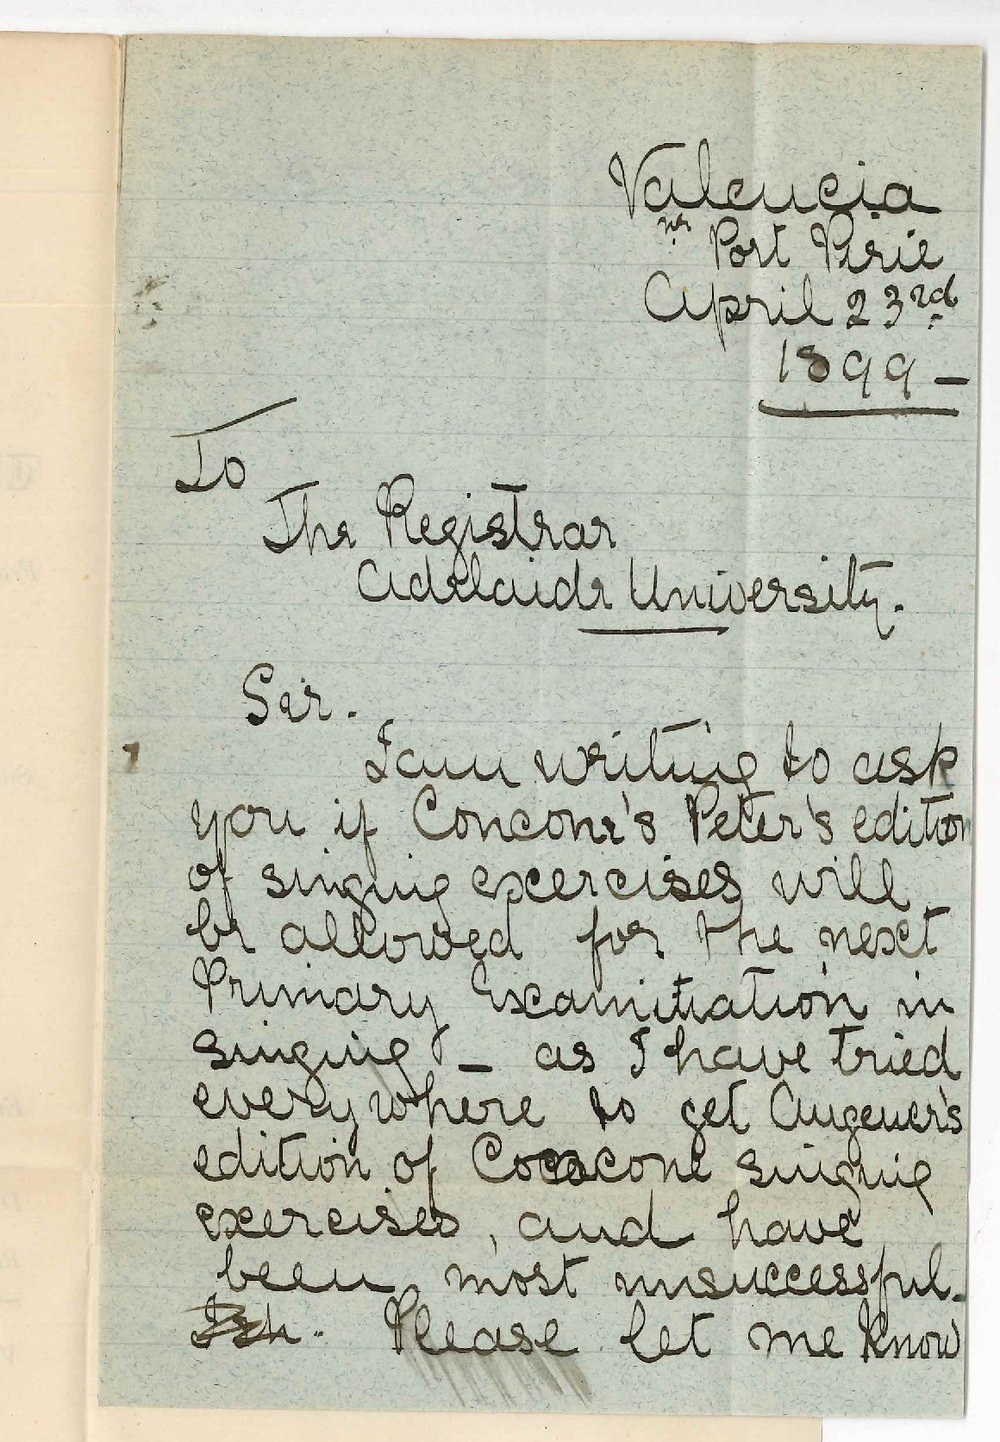 Valencia
nr Port Pirie
April 23rd
1899 -
To
The Registrar
Adelaide University.
Sir.
I am writing to ask
you if Concone's Peter's edition
of singing exercises will
be allowed for the next
Primary Examination in
singing - as I have tried
everywhere to get Augener's
edition of Concone singing
exercises, and have
been most unsuccessful.
Please let me know